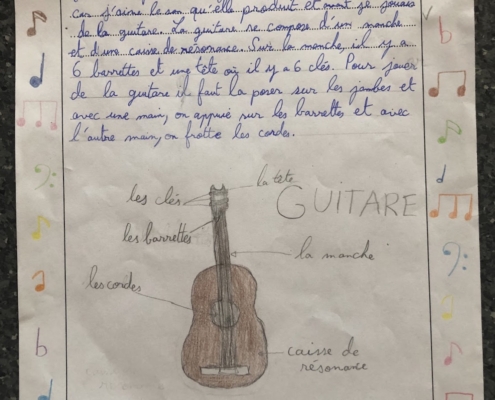 car j'aime le son qu'elle produit et mont je jouais
de la guitare. La guitare se compose d'un manche
et d'une caisse de résonance. Sur la manche, il y a
6 barrettes et une tête où il y a 6 clés. Pour jouer
de la guitare il faut la poser sur les jambes et
avec une main, on appuie sur les barrettes et avec
l'autre main, on frotte les cordes.
la tête
les clés
GUITARE
les barrettes
la manche
les cordes
caisse de
résonance